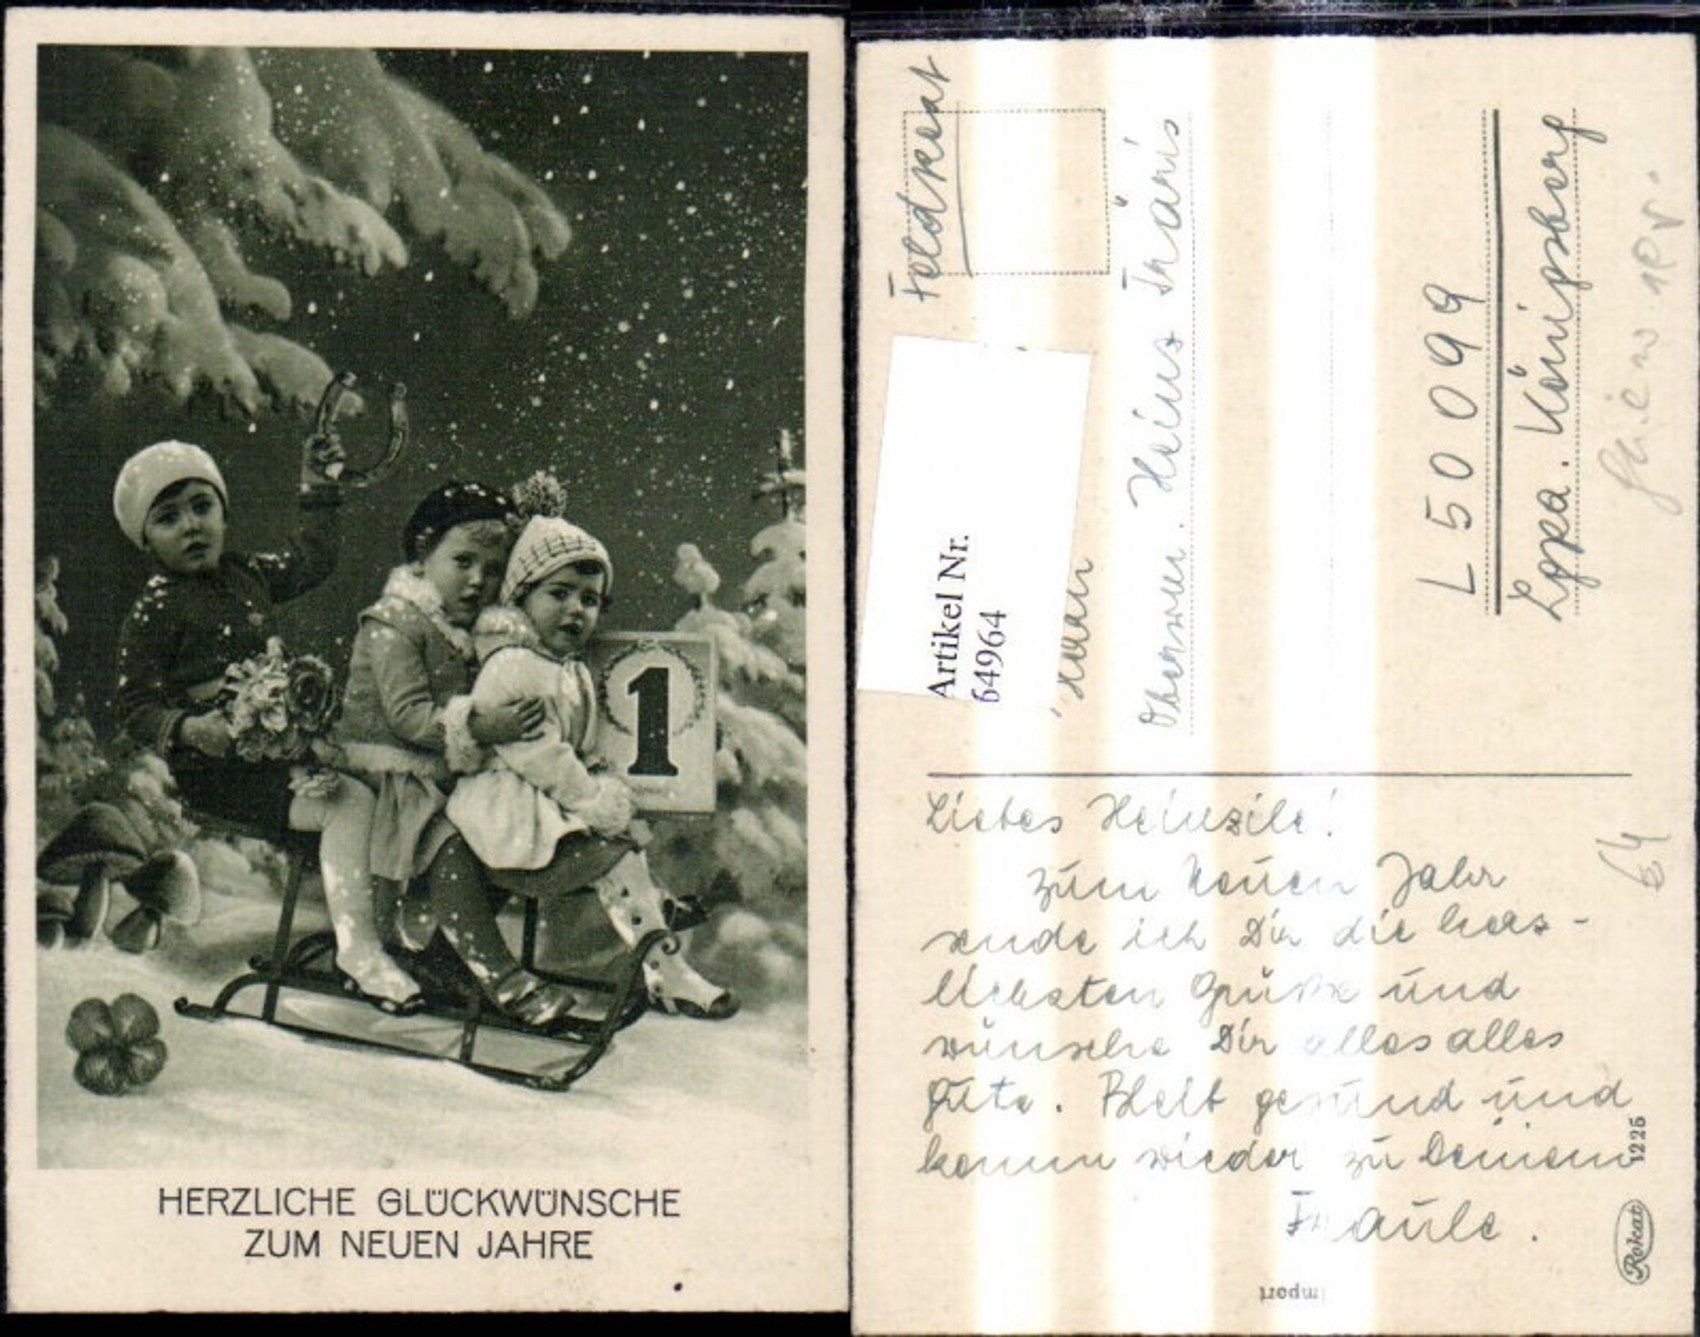 1
HERZLICHE GLÜCKWÜNSCHE
ZUM NEUEN JAHRE
Feldpost
Artikel Nr.
64964
Herrn
Oberwm. Heinz Fränis
L 50 099
Lgpa. Königsberg
Liebes Heinzile!
zum Neuen Jahr
sende ich Dir die herz-
lichsten Grüsse und
wünsche Dir alles alles
Gute. Bleib gesund und
komm wieder zu Deinem
Fraule.
1225
Rokat
Import